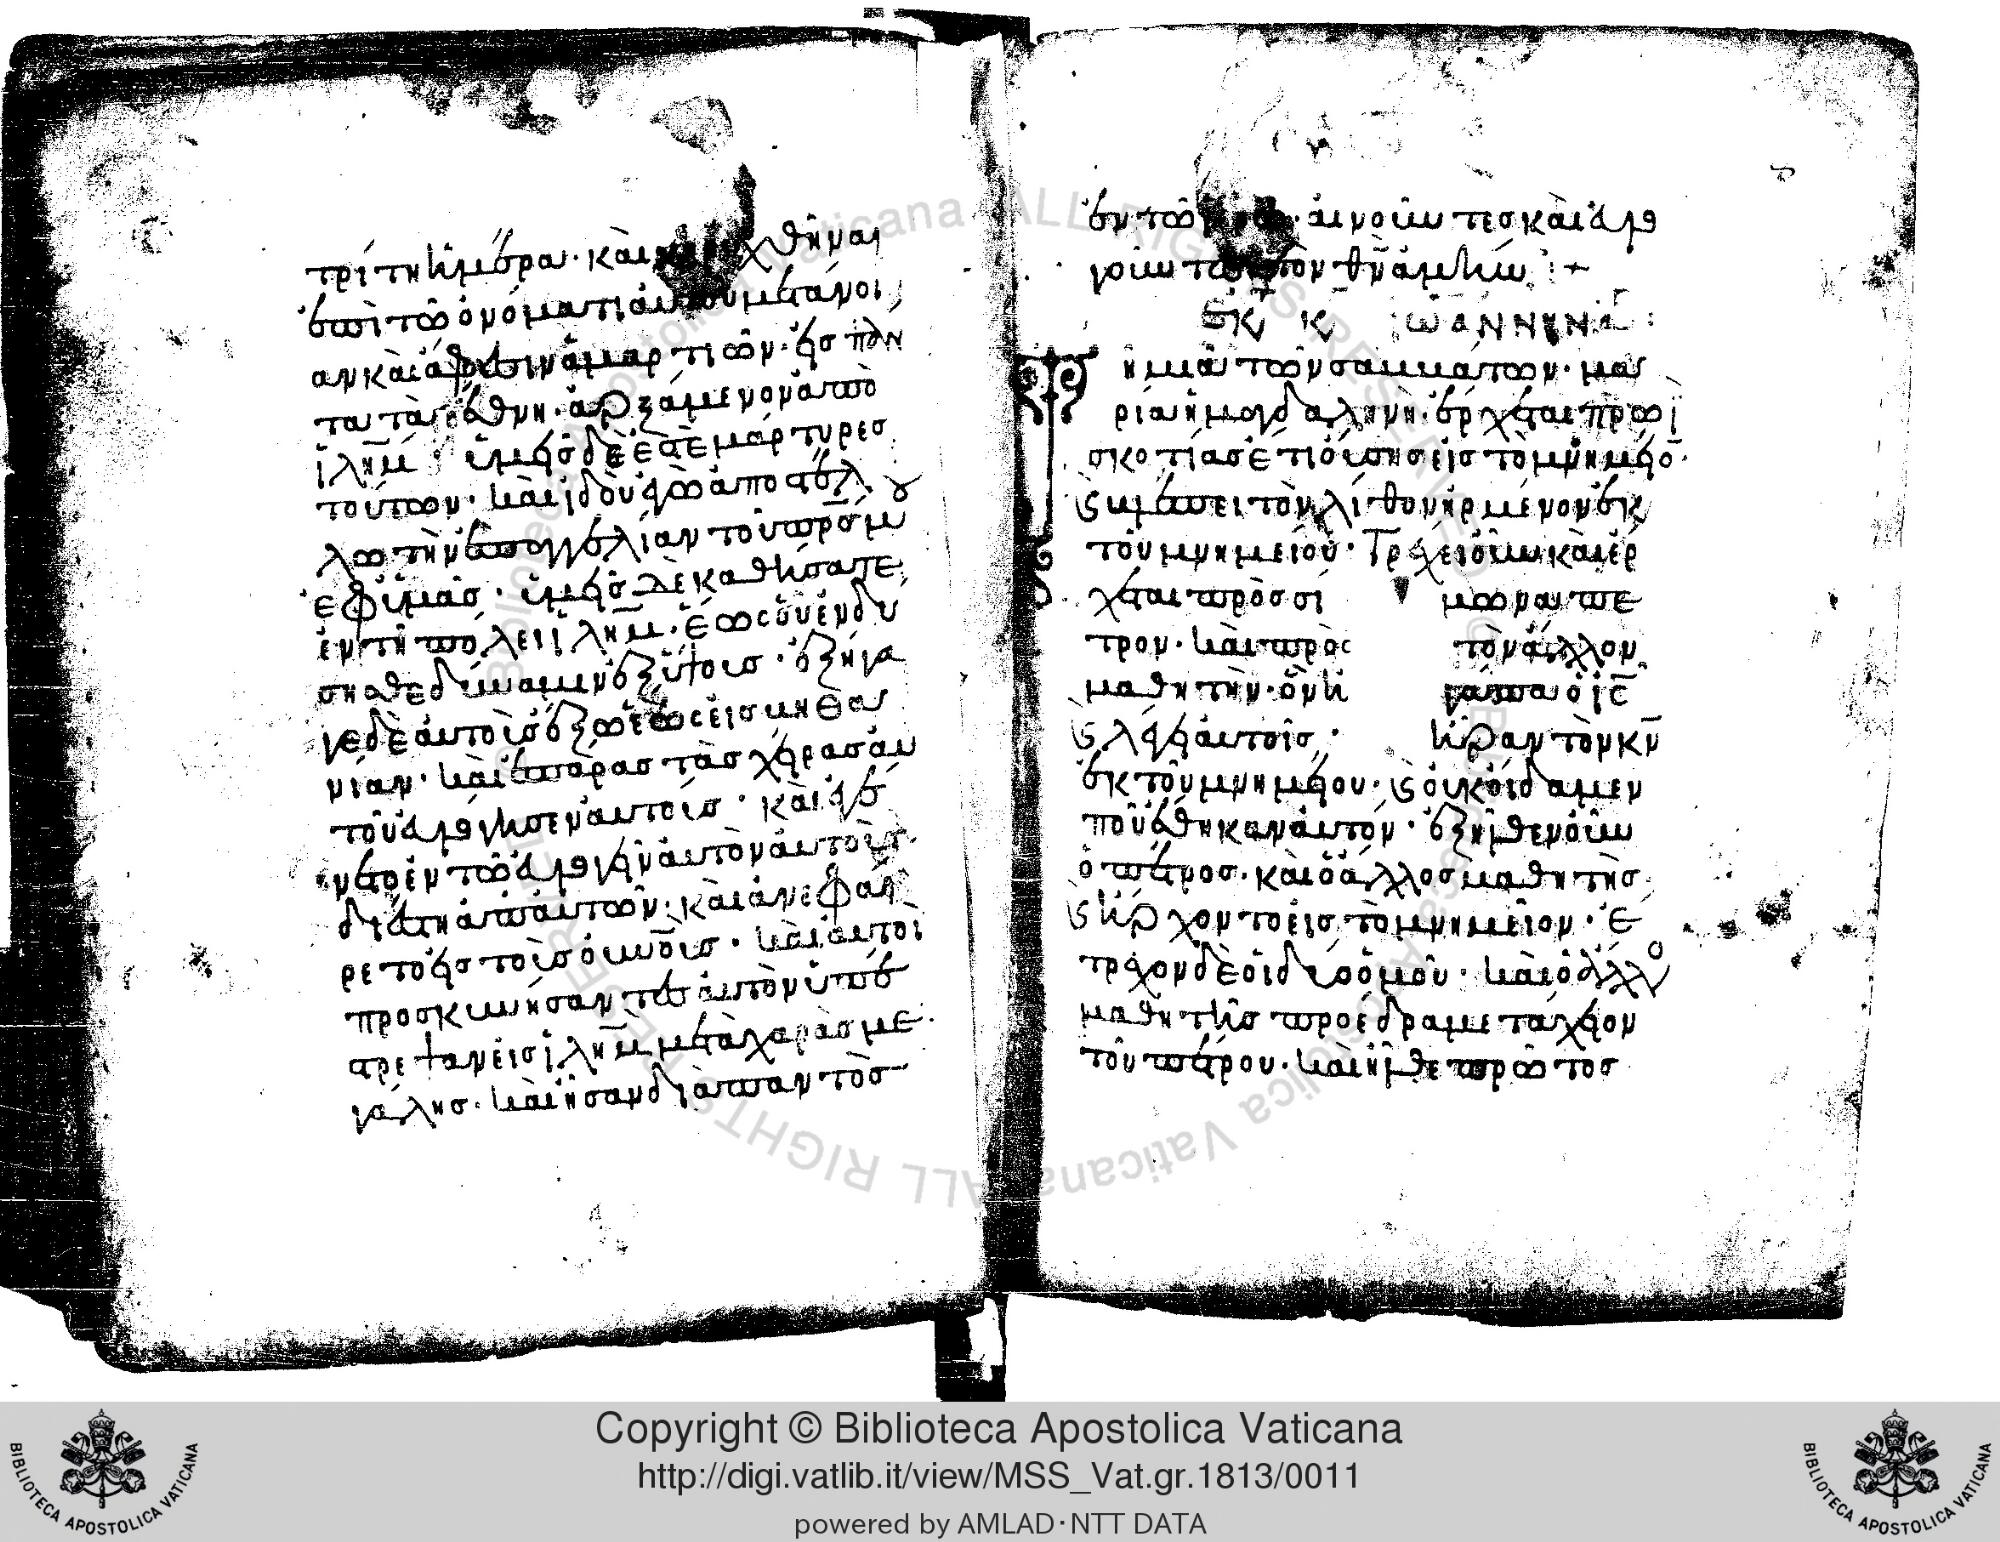 τρίτη ἡμέρα· καὶ κηρυχθῆναι
ἐπὶ τῶ ὀνόματι αὐτοῦ μετάνοι
αν καὶ ἄφεσιν ἁμαρτιῶν· εἰς πάν
τα τὰ ἔθνη· ἀρξάμενον ἀπὸ
ἰλη̅μ· ὑμεῖς δὲ ἐστὲ μάρτυρες
τούτων· καὶ ἰδοὺ ἐγὼ ἀποστέλ
λω τὴν ἐπαγγελίαν τοῦ πρ̅σ μου
ἐφ ὑμᾶς· ὑμεῖς δὲ καθήσατε
ἐν τῆ πόλει ἰλη̅μ· ἕως οὗ ἐνδύ
σησθε δύναμιν ἐξ ὕψους· ἐξήγα
γε δὲ αὐτοὺς ἔξω ἕως εἰς βηθα
νίαν· καὶ ἐπάρας τὰς χεῖρας αὐ
τοῦ εὐλόγησεν αὐτούς· καὶ ἐγέ
νετο ἐν τῶ εὐλογεῖν αὐτὸν αὐτούς·
διέστη ἀπ αὐτῶν· καὶ ἀνεφέ
ρετο εἰς τοὺς οὐν̅ους· καὶ αὐτοὶ
προσκυνήσαντες αὐτὸν ὑπέ
στρεψαν εἰς ἰλη̅μ μετὰ χαρᾶς με
γάλης· καὶ ἦσαν διὰ παντὸς
ἐν τῶ ἱερῶ· αἰνοῦντες καὶ εὐλο
γοῦντες τὸν θν̅ ἀμήν :+
ΕΚ Τ Κ ΙΩΑΝΝΗΝ
Τῆ μιᾶ τῶν σαββάτων· μα
ρία ἡ μαγδαληνὴ· ἔρχεται πρωῒ
σκοτίας ἔτι οὔσης εἰς τὸ μνημεῖο̅·
ϗ βλέπει τὸν λίθον ἠρμένον ἐκ
τοῦ μνημείου· Τρέχει οὖν καὶ ἔρ
χεται πρὸς σίμωνα πέ
τρον· καὶ πρὸς τὸν ἄλλον
μαθητὴν· ὃν ἠγάπα ὁ ἰς̅
ϗ λέγει αὐτοῖς· ἦραν τὸν κν̅
ἐκ τοῦ μνημείου· ϗ οὐκ οἴδαμεν
ποῦ ἔθηκαν αὐτόν· ἐξῆλθεν οὖν
ὁ πέτρος· καὶ ὁ ἄλλος μαθητὴς
ϗ ἤρχοντο εἰς τὸ μνημεῖον· ἔ
τρεχον δὲ οἱ δύο ὁμοῦ· καὶ ὁ ἄλλο
μαθητὴς προέδραμε τάχειον
τοῦ πέτρου· καὶ ἦλθε πρῶτος
Copyright © Biblioteca Apostolica Vaticana
http://digi.vatlib.it/view/MSS_Vat.gr.1813/0011
powered by AMLAD·NTT DATA
BIBLIOTECA APOSTOLICA VATICANA
BIBLIOTECA APOSTOLICA VATICANA